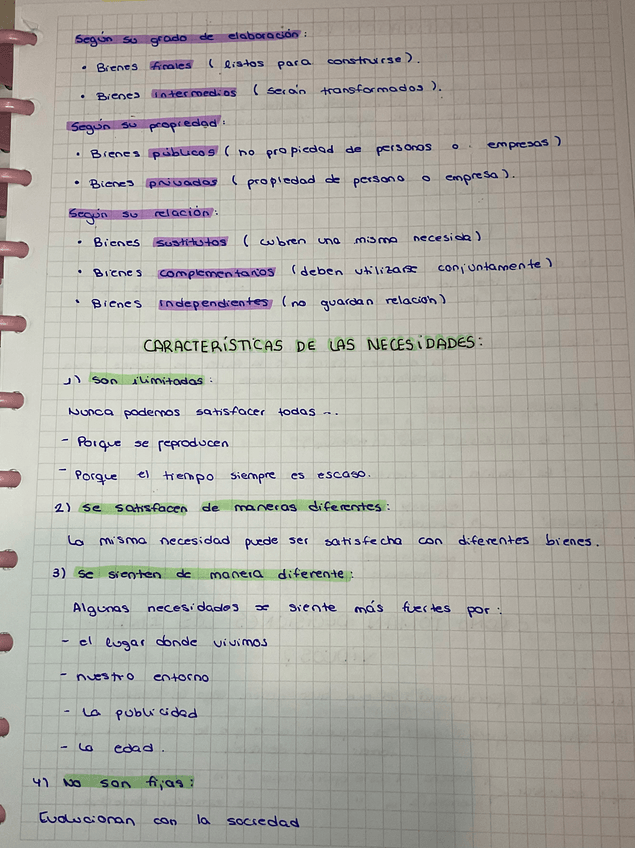 Según su grado de elaboración:
• Bienes finales ( listos para construirse).
• Bienes intermedios ( serán transformados ).
Según su propiedad:
• Bienes públicos ( no propiedad de personas o empresas)
• Bienes privados ( propiedad de persona o empresa).
Según su relación:
• Bienes sustitutos ( cubren una misma necesida)
• Bienes complementarios (deben utilizarse conjuntamente)
• Bienes independientes (no guardan relación)
CARACTERÍSTICAS DE LAS NECESIDADES:
1) son ilimitadas:
Nunca podemos satisfacer todas ...
- Porque se reproducen
- Porque el tiempo siempre es escaso.
2) se satisfacen de maneras diferentes:
La misma necesidad puede ser satisfecha con diferentes bienes.
3) se sienten de manera diferente:
Algunas necesidades se siente más fuertes por:
- el lugar donde vivimos
- nuestro entorno
- La publicidad
- La edad.
4) No son fijas:
Evolucionan con la sociedad